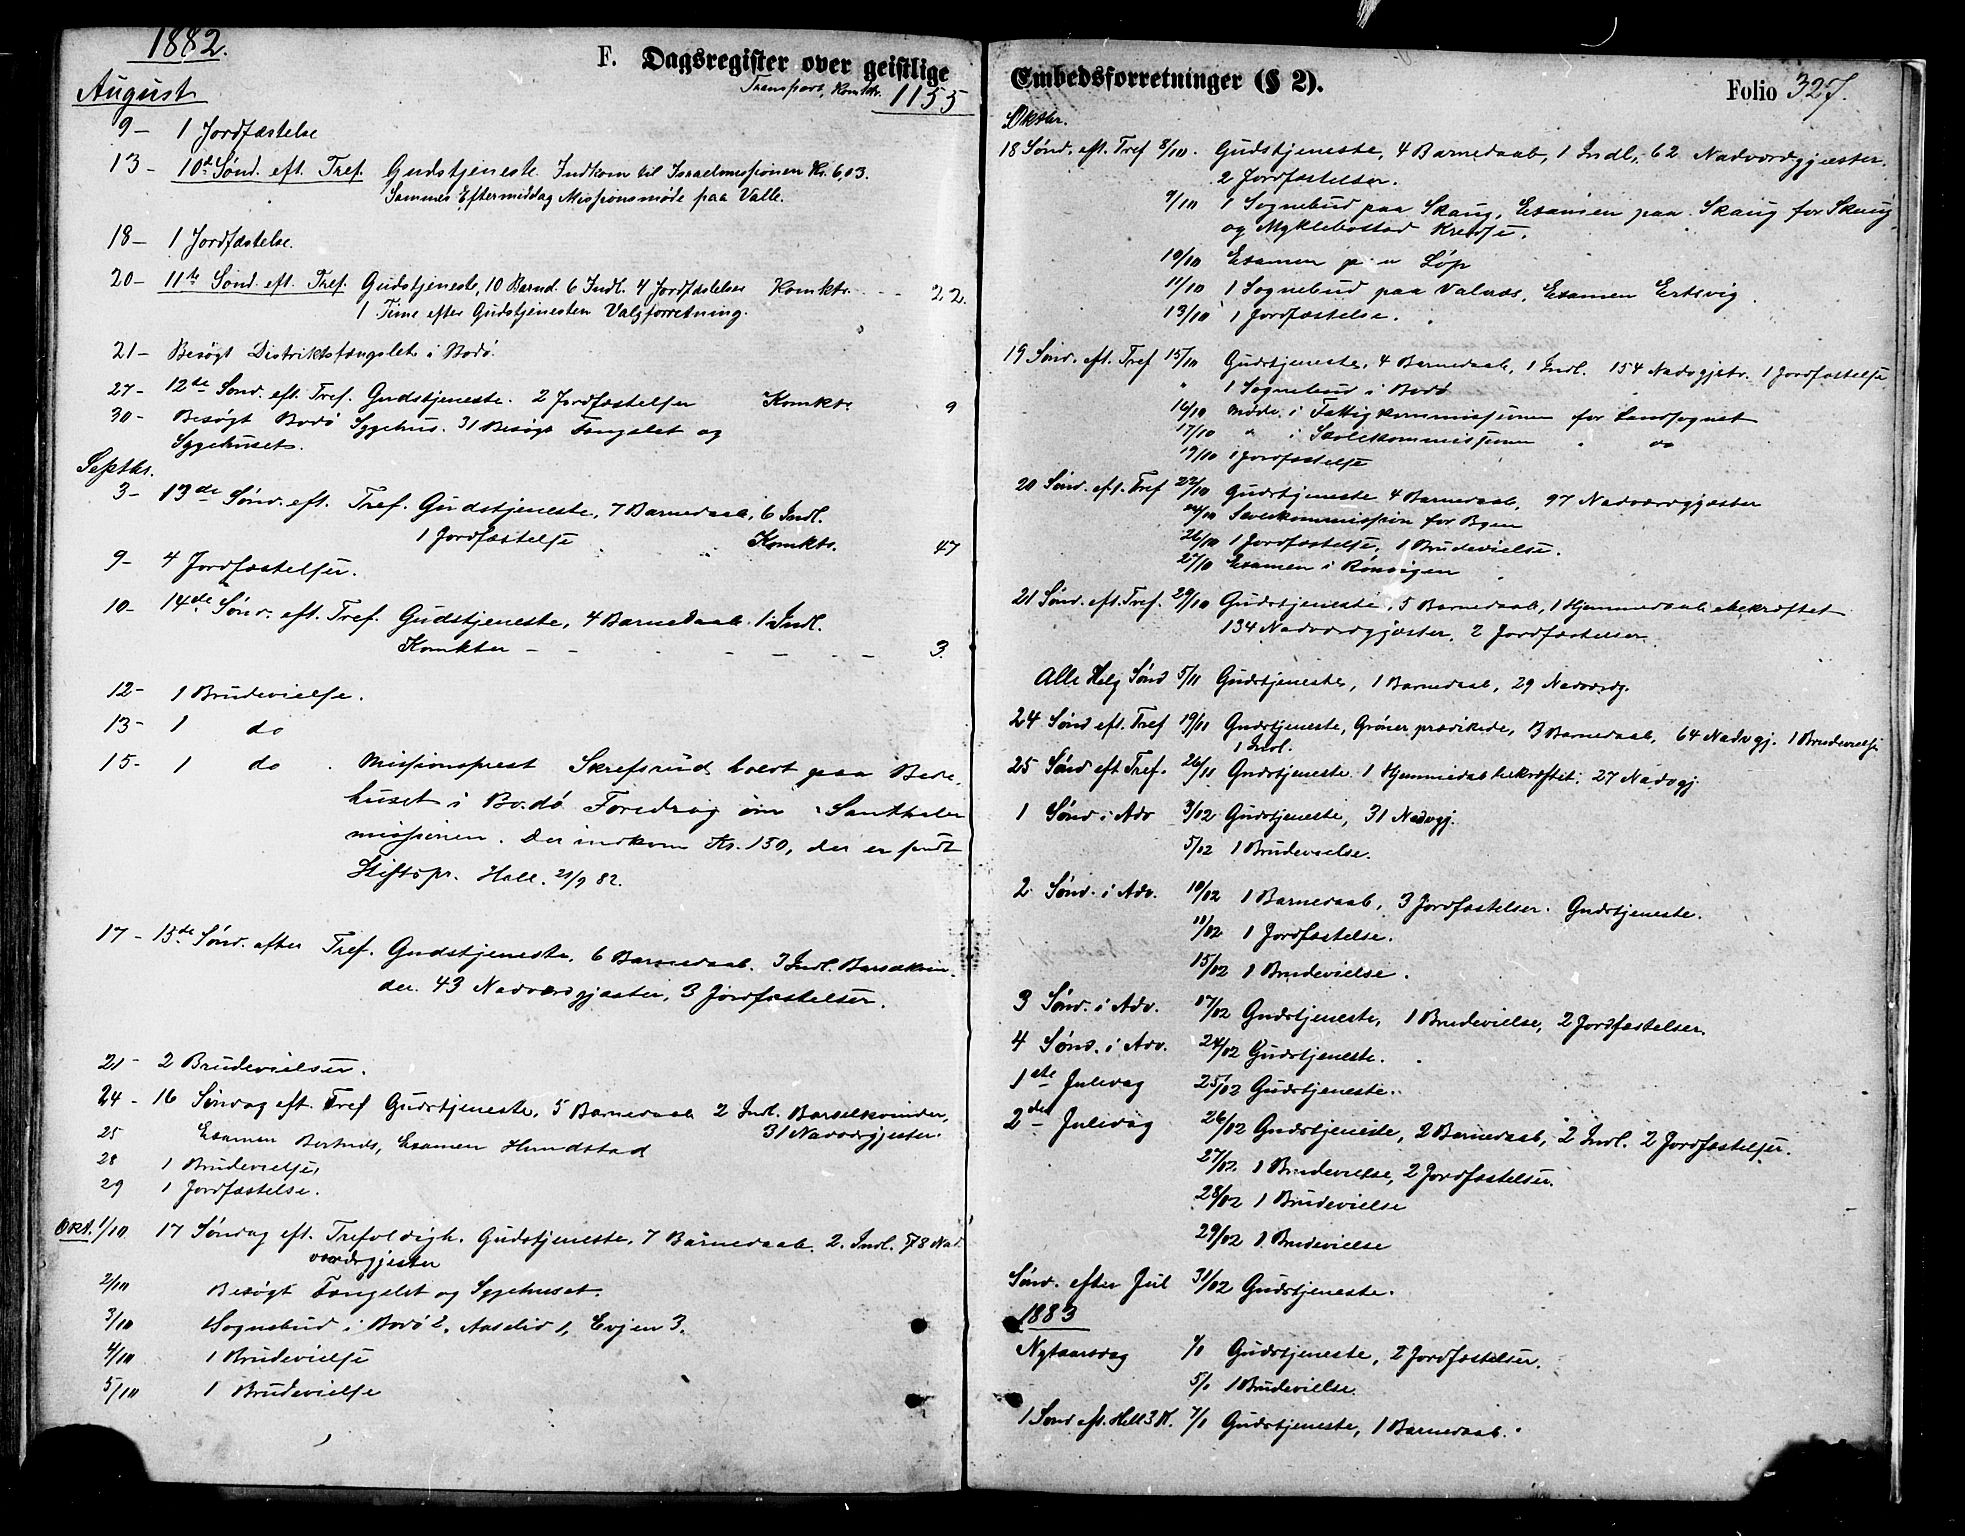 1882.
F. Dagsregister over geistlige
August
Transport, Komktr. 1155
9 – 1 Jordfæstelse
13 – 10de Sønd. eft. Tref. Gudstjeneste Indkom til Israelsmissionen Kr. 6,03.
Sammes Eftermiddag Missionsmøde paa Valle.
18 – 1 Jordfæstelse.
20 – 11te Sønd. eft. Tref. Gudstjeneste, 10 Barnd. 6 Indl. 4 Jordfæstelser Komktr. - - 22.
1 Time efter Gudstjenesten Valgforretning.
21 – Besøgt Distriktsfængslet i Bodø.
27 – 12de Sønd. eft. Tref. Gudstjeneste. 2 Jordfæstelser Komktr. 9
30 – Besøgt Bodø Sygehus. 31 Besøgt Fængslet og
Sygehuset.
Septbr.
3 – 13de Sønd. eft. Tref. Gudstjeneste, 7 Barnedaab, 6 Indl.
1 Jordfæstelse Komktr. 47
9 – 4 Jordfæstelser.
10 – 14de Sønd. eft. Tref. Gudstjeneste, 4 Barnedaab 1 Indl.
Komkter – – – – – – 3.
12 – 1 Brudevielse.
13 – 1 do
15 – 1 do. Missionsprest Skrefsrud holdt paa Bede-
huset i Bodø Foredrag om Santhaler
missionen. Der indkom Kr. 150, der er sendt
Stiftspr. Hall. 21/9 82.
17 – 15de Sønd. efter Tref. Gudstjeneste, 6 Barnedaab. 3 Indl. Barselkvin-
der. 43 Nadverdgjæster, 3 Jordfæstelser.
21 – 2 Brudevielser.
24 – 16 Søndag eft. Tref Gudstjeneste, 5 Barnedaab 2 Indl. Barselkvinder,
31 Nadvdgjester.
25 Examen Bertnes, Examen Hundstad
28 1 Brudevielse,
29 1 Jordfæstelse.
Okt. 1/10 17 Søndag eft. Trefoldigh. Gudstjeneste, 7 Barnedaab. 2. Indl. 78 Nad-
verdsgjester
2/10 Besøgt Fængslet og Sygehuset.
3/10 Sognebud i Bodø 2, Aaselid 1, Evjen 3.
4/10 1 Brudevielse
5/10 1 Brudevielse
Embedsforretninger (§ 2).
Folio 327.
Oktbr.
18 Sønd. eft. Tref 8/10. Gudstjeneste, 4 Barnedaab, 1 Indl., 62 Nadverdgjæster,
2 Jordfæstelser.
9/10 1 Sognebud paa Skaug, Examen paa Skaug for Skaug
og Myklebostad Kredse.
10/10 Examen p. Løp
11/10 1 Sognebud paa Valnæs, Examen Ertsvig.
13/10 1 Jordfæstelse.
19 Sønd. eft. Tref 15/10 Gudstjeneste, 4 Barnedaab, 1 Indl. 154 Nadvgjstr. 1 Jordfæstelse
" 1 Sognebud i Bodø
16/10 Møde i Fattigkommissionen for Landsognet
17/10 " i Skolekommissionen " do
19/10 1 Jordfæstelse
20 Sønd. eft. Tref 22/10 Gudstjeneste 4 Barnedaab, 97 Nadverdgjæster
24/10 Skolekommission for Byen
26/10 1 Jordfæstelse, 1 Brudevielse.
27/10 Examen i Rønvigen
21 Sønd. eft. Tref. 29/10 Gudstjeneste, 5 Barnedaab, 1 Hjemmedaab bekræftet
134 Nadverdgjæster, 2 Jordfæstelser.
Alle Helg Sønd 5/11 Gudstjeneste, 1 Barnedaab, 29 Nadverdg.
24 Sønd eft. Tref 19/11 Gudstjeneste, Grøner prædikede, 3 Barnedaab, 64 Nadvgj. 1 Brudevielse
1 Indl.
25 Sønd eft Tref. 26/11 Gudstjeneste 1 Hjemmedaab bekræftet. 27 Nadvgj
1 Sønd i Adv 3/12 Gudstjeneste, 31 Nadvgj.
5/12 1 Brudevielse.
2 Sønd. i Adv. 10/12 1 Barnedaab, 3 Jordfæstelser. Gudstjeneste.
11/12 1 Jordfæstelse.
15/12 1 Brudevielse.
3 Sønd. i Adv. 17/12 Gudstjeneste, 1 Brudevielse, 2 Jordfæstelser.
4 Sønd. i Adv. 24/12 Gudstjeneste.
1ste Juledag 25/12 Gudstjeneste.
2den Juledag 26/12 Gudstjeneste, 2 Barnedaab, 2 Indl. 2 Jordfæstelser.
27/12. 1 Brudevielse, 2 Jordfæstelser.
28/12 1 Brudevielse
29/12 1 Brudevielse
Sønd. efter Jul 31/12 Gudstjeneste.
1883
Nytaarsdag 1/1 Gudstjeneste, 2 Jordfæstelser.
5/1 1 Brudevielse.
1 Sønd eft. Hell 3 K. 7/1 Gudstjeneste, 1 Barnedaab.